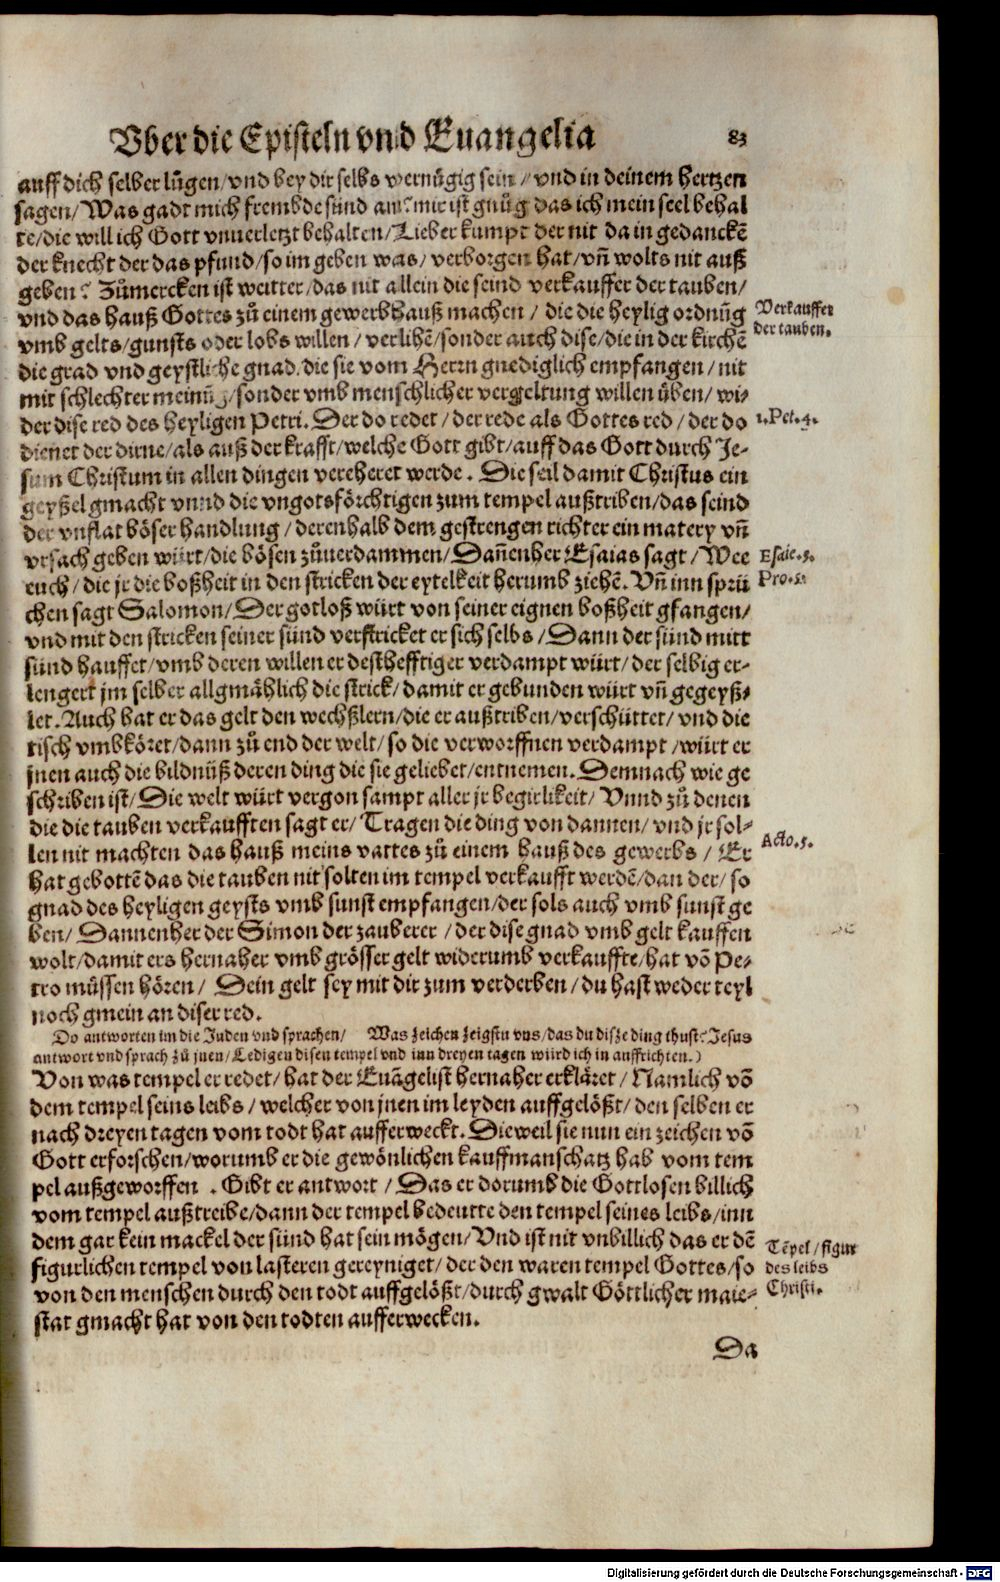 Vber die Episteln vnd Euangelia 83
auff dich selber lůgen/vnd bey dir selbs vernügig sein/vnd in deinem hertzen
sagen/Was gadt mich frembde sünd an? mir ist gnůg das ich mein seel behal
te/die will ich Gott vnuerletzt behalten/Lieber kumpt der nit da in gedanckē
der knecht der das pfund/so im geben was/verborgen hat/vñ wolts nit auß
geben? Zůmercken ist weitter/das nit allein die seind verkauffer der tauben/
vnd das hauß Gottes zů einem gewerbhauß machen/ die die heylig ordnūg
vmb gelts/gunsts oder lobs willen/verlihē/sonder auch dise/die in der kirchē
die grad vnd geystliche gnad/die sie vom Herrn gnediglich empfangen/nit
mit schlechter meinūg/sonder vmb menschlicher vergeltung willen üben/wi-
der dise red des heyligen Petri. Der do redet/der rede als Gottes red/der do
dienet der diene/als auß der krafft/welche Gott gibt/auff das Gott durch Je-
sum Christum in allen dingen vereheret werde. Die seil damit Christus ein
geyßel gmacht vnnd die vngotsförchtigen zum tempel außtriben/das seind
der vnflat böser handlung/derenhalb dem gestrengen richter ein matery vñ
vrsach geben würt/die bösen zůuerdammen/Dañenher Esaias sagt/Wee
euch/die jr die boßheit in den stricken der eytelkeit herumb ziehē. Vñ inn sprü
chen sagt Salomon/Der gotloß würt von seiner eignen boßheit gfangen/
vnd mit den stricken seiner sünd verstricket er sich selbs/Dann der sünd mitt
sünd hauffet/vmb deren willen er desthefftiger verdampt würt/der selbig er-
lengert jm selber allgmählich die strick/damit er gebunden würt vñ gegeyß-
let. Auch hat er das gelt den wechßlern/die er außtriben/verschüttet/vnd die
tisch vmbköret/dann zů end der welt/so die verworffnen verdampt/würt er
jnen auch die bildnüß deren ding die sie geliebet/entnemen. Demnach wie ge
schriben ist/Die welt würt vergon sampt aller jr begirlikeit/Vnnd zů denen
die die tauben verkaufften sagt er/Tragen die ding von dannen/vnd jr sol-
len nit machten das hauß meins vattes zů einem hauß des gewerbs/Er
hat gebottē das die tauben nit solten im tempel verkaufft werdē/dan der/so
gnad des heyligen geysts vmb sunst empfangen/der sols auch vmb sunst ge
ben/ Dannenher der Simon der zauberer/der dise gnad vmb gelt kauffen
wolt/damit ers hernaher vmb grösser gelt widerumb verkauffte/hat vō Pe-
tro müssen hören/ Dein gelt sey mit dir zum verderben/du hast weder teyl
noch gmein an diser red.
Do antworten im die Juden vnd sprachen/ Was zeichen zeigstu vns/das du disze ding thust? Jesus
antwort vnd sprach zů jnen/Ledigen disen tempel vnd inn dreyen tagen würd ich in auffrichten.)
Von was tempel er redet/hat der Euāgelist hernaher erkläret/Namlich vō
dem tempel seins leibs/welcher von jnen im leyden auffgelößt/den selben er
nach dreyen tagen vom todt hat aufferweckt. Dieweil sie nun ein zeichen vō
Gott erforschen/worumb er die gewönlichen kauffmanschatz hab vom tem
pel außgeworffen. Gibt er antwort/Das er dorumb die Gottlosen billich
vom tempel außtreibe/dann der tempel bedeutte den tempel seines leibs/inn
dem gar kein mackel der sünd hat sein mögen/Vnd ist nit vnbillich das er dē
figurlichen tempel von lasteren gereyniget/der den waren tempel Gottes/so
von den menschen durch den todt auffgelößt/durch gwalt Göttlicher maie-
stat gmacht hat von den todten aufferwecken.
Da
Verkauffer
der tauben.
1.Pet.4.
Esaie.5.
Pro.5.
Acto.5.
Tēpel/figur
des leibs
Christi.
Digitalisierung gefördert durch die Deutsche Forschungsgemeinschaft - DFG